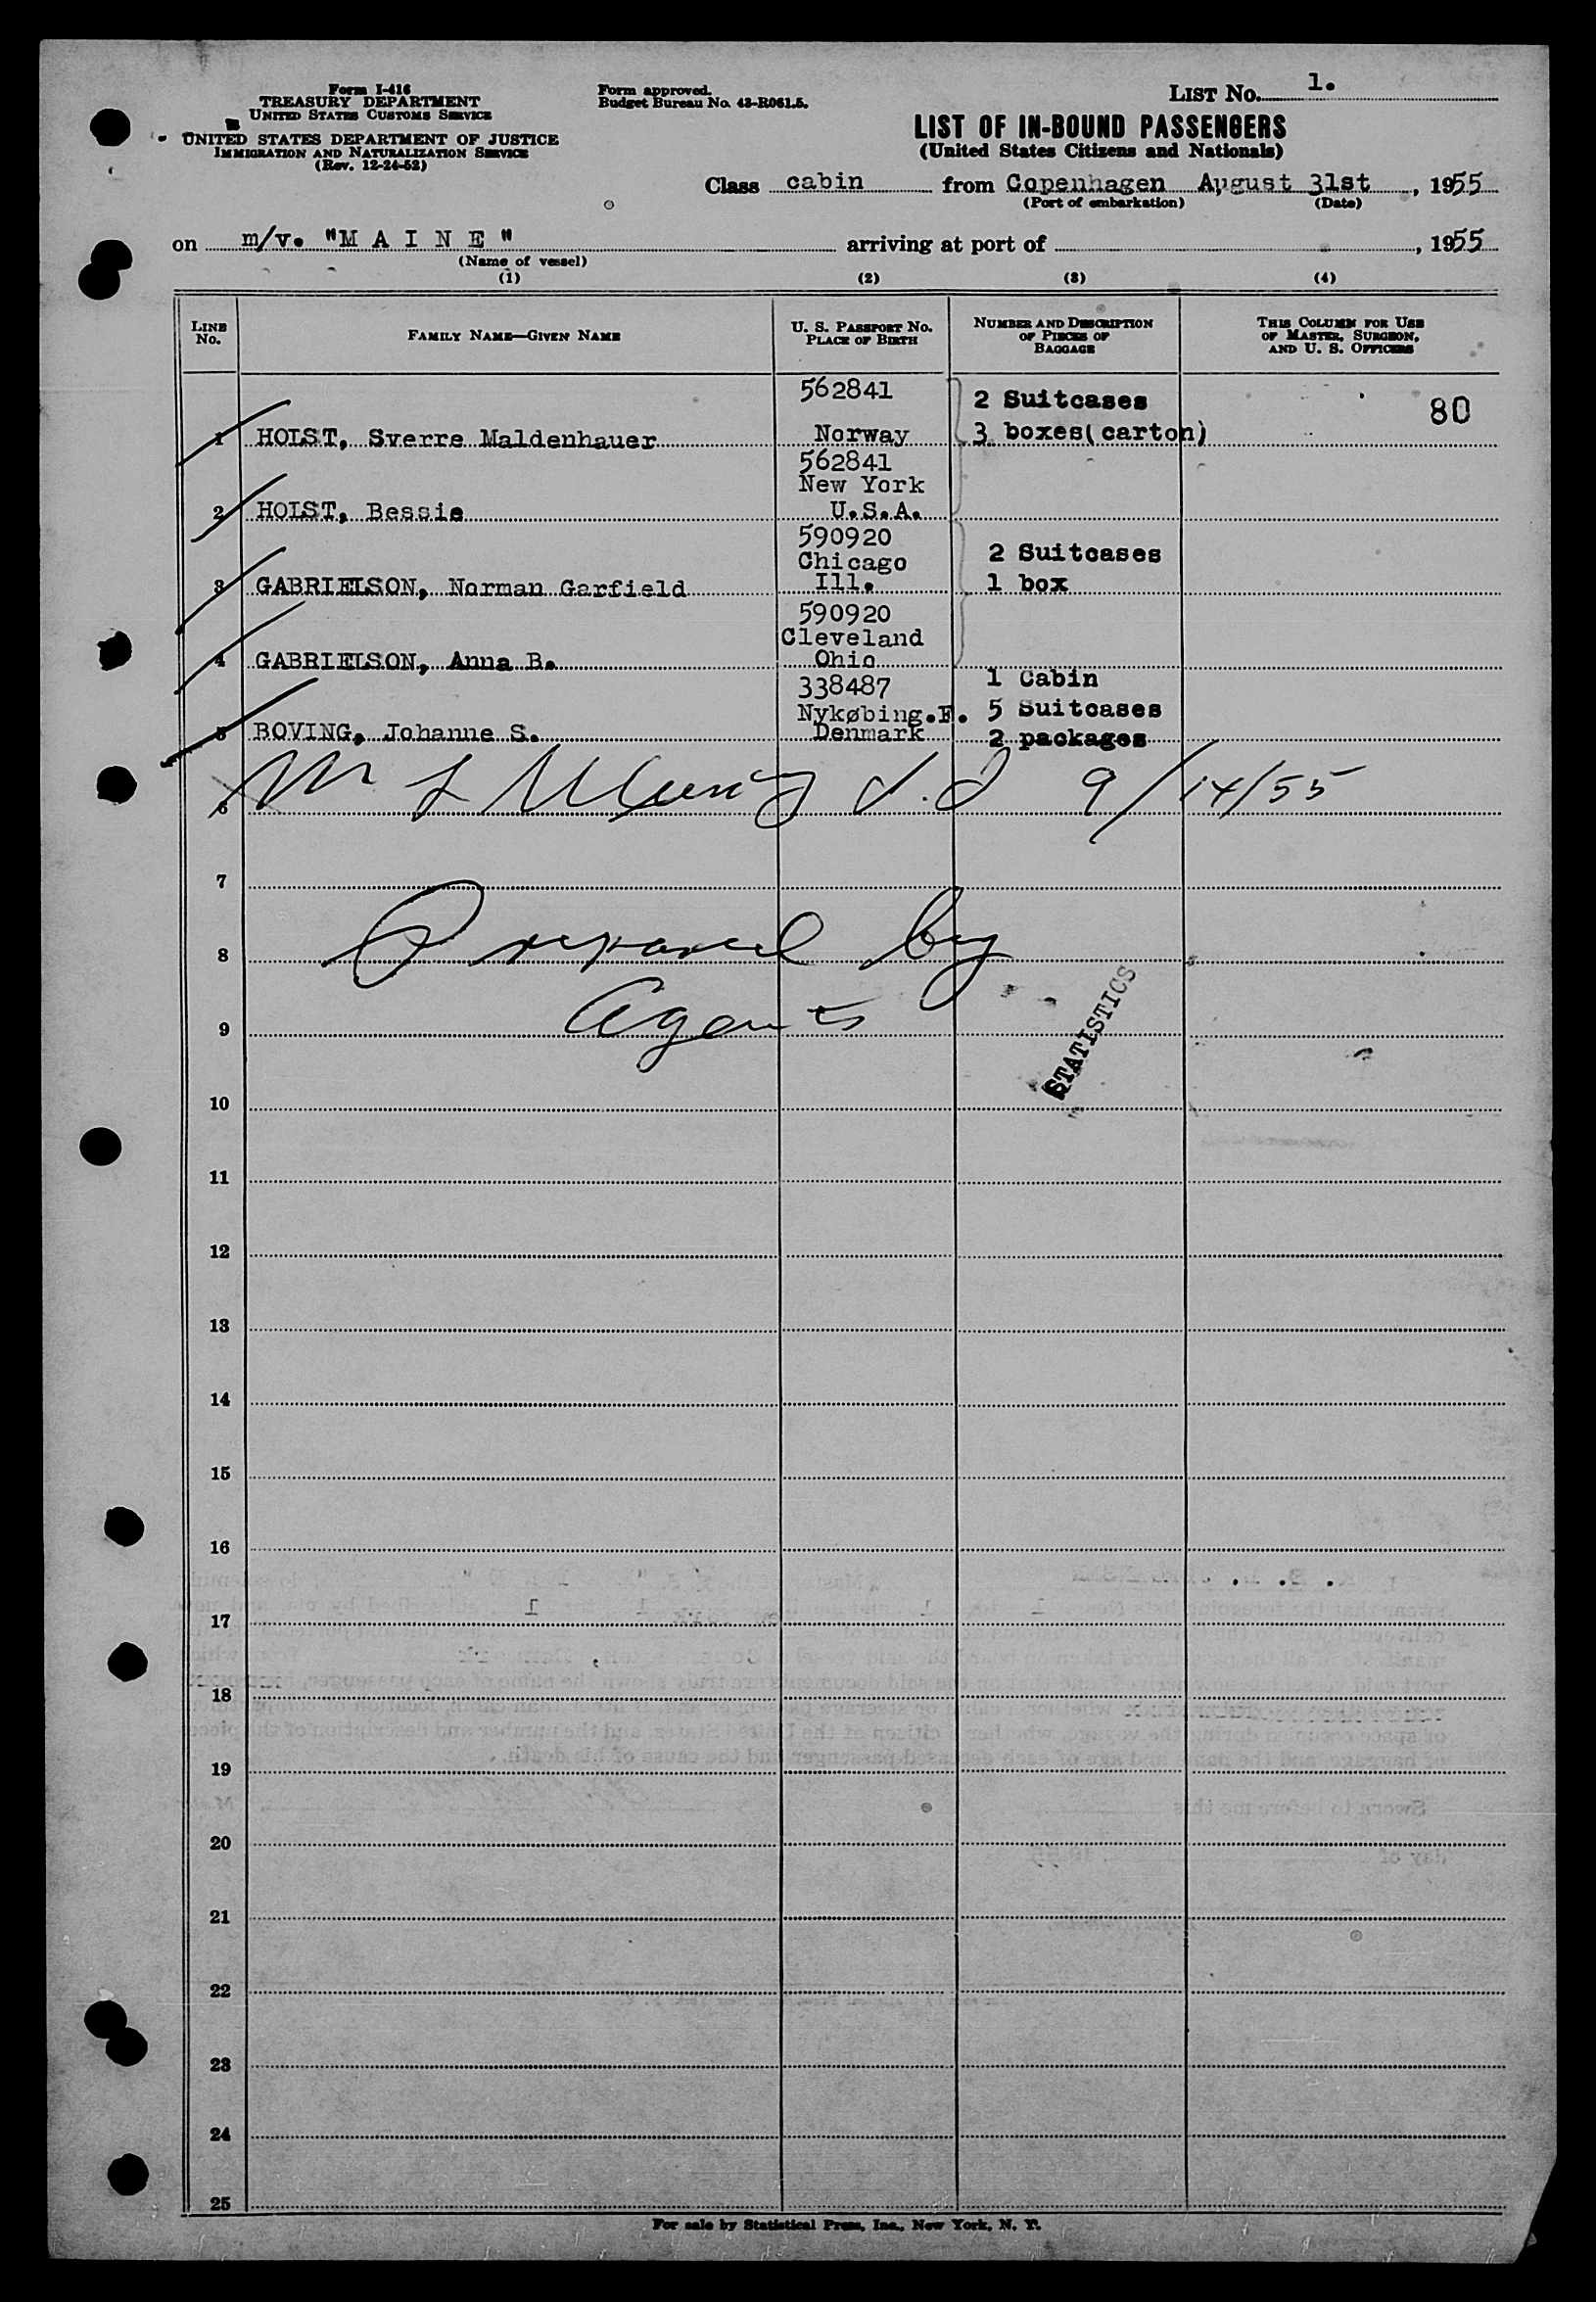 Form I-416
TREASURY DEPARTMENT
UNITED STATES CUSTOMS SERVICE
UNITED STATES DEPARTMENT OF JUSTICE
IMMIGRATION AND NATURALIZATION SERVICE
(Rev. 12-24-52)
Form approved.
Budget Bureau No. 43-R061.5.
LIST No. 1.
LIST OF IN-BOUND PASSENGERS
(United States Citizens and Nationals)
Class cabin from Copenhagen August 31st, 1955
(Port of embarkation) (Date)
on m/v. "M A I N E" arriving at port of , 1955
(Name of vessel)
(1) (2) (3) (4)
LINE No. FAMILY NAME—GIVEN NAME U. S. PASSPORT No. PLACE OF BIRTH NUMBER AND DESCRIPTION OF PIECES OF BAGGAGE THIS COLUMN FOR USE OF MASTER, SURGEON, AND U. S. OFFICERS
562841 2 Suitcases 80
1 HOIST, Sverre Maldenhauer Norway 3 boxes(carton)
562841
New York
2 HOIST, Bessie U.S.A.
590920 2 Suitcases
Chicago
3 GABRIELSON, Norman Garfield Ill. 1 box
590920
Cleveland
4 GABRIELSON, Anna B. Ohio
338487 1 Cabin
Nykøbing.F. 5 Suitcases
5 BOVING, Johanne S. Denmark 2 packages
6 9/14/55
7
8 Prepared by
9 Agents
STATISTICS
10
11
12
13
14
15
16
17
18
19
20
21
22
23
24
25
For sale by Statistical Press, Inc., New York, N. Y.